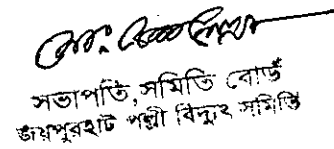 সভাপতি, সমিতি বোর্ড
জয়পুরহাট পল্লী বিদ্যুৎ সমিতি